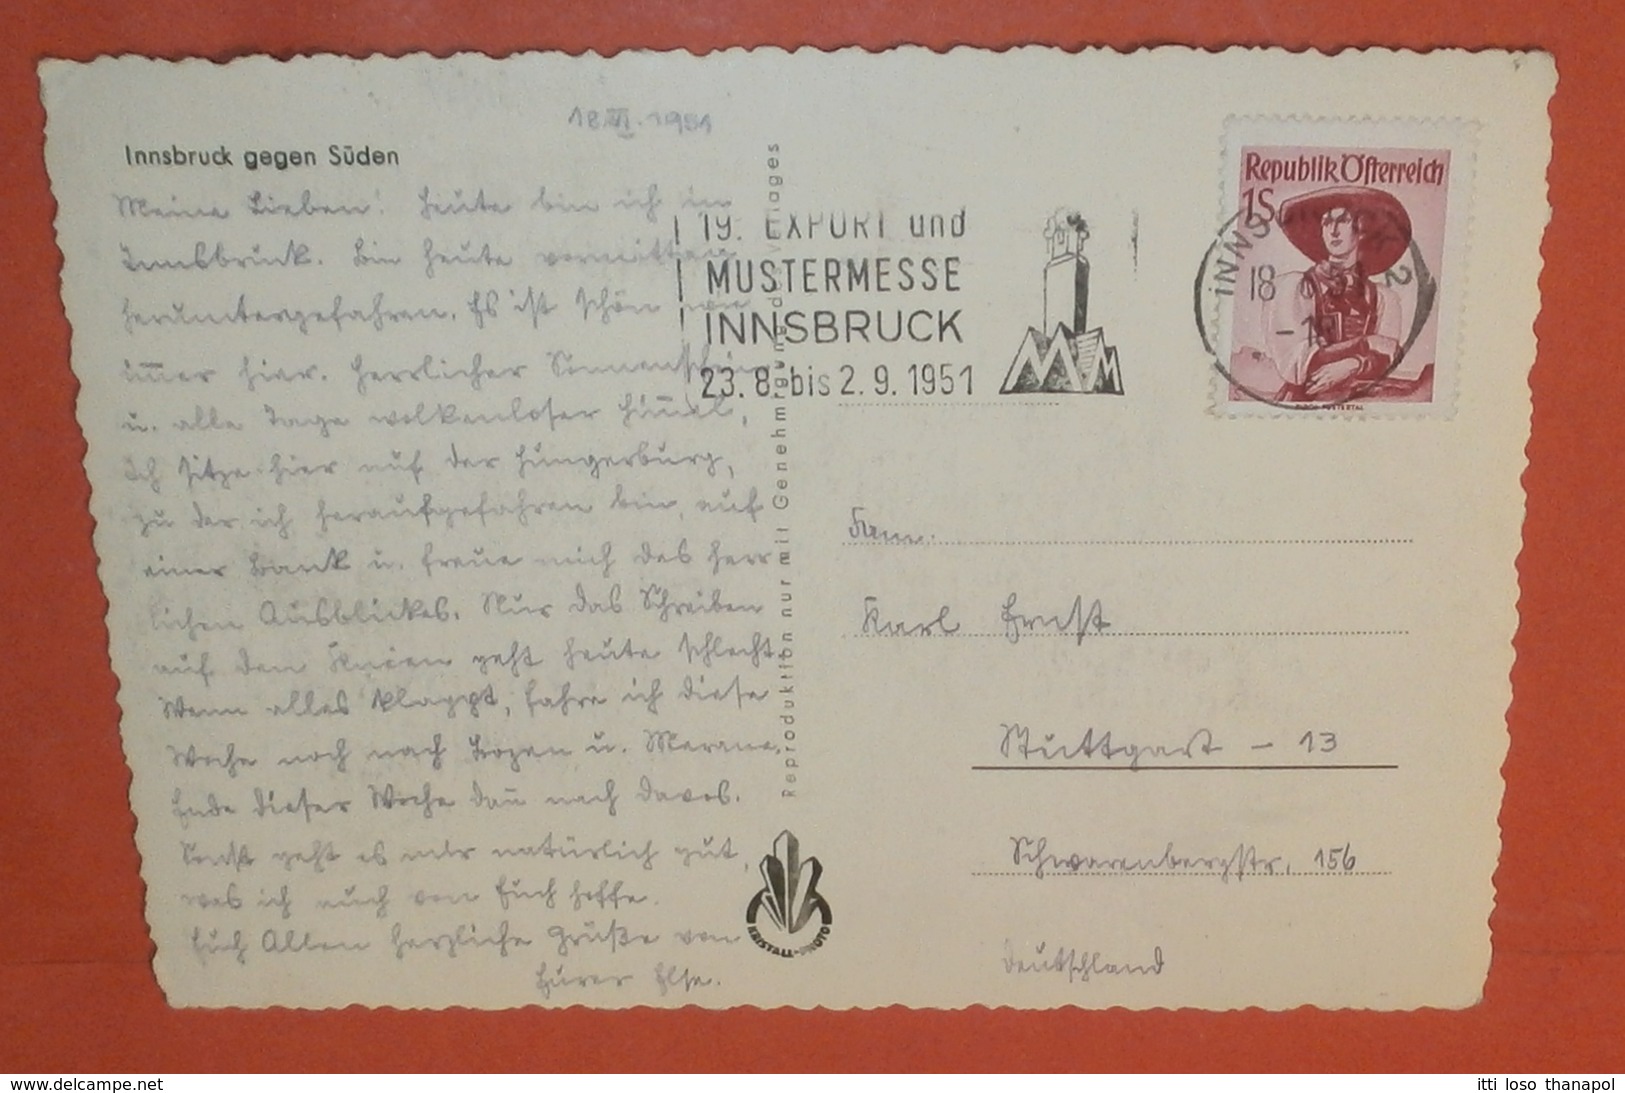 18.VI.1951
Innsbruck gegen Süden
Meine Lieben! Heute bin ich in
Innsbruck. Bin heute vormittag
heruntergefahren. Es ist schön wie
im̄er hier. Herrlicher Sonnenschein
u. alle Tage wolkenloser Him̄el,
Ich sitze hier auf der Hungerburg,
zu der ich heraufgefahren bin, auf
einer Bank u. freue mich des herr
lichen Ausblickes. Nur das Schreiben
auf den Knien geht heute schlecht.
Wenn alles klappt, fahre ich diese
Woche noch nach Bozen u. Meran.
Ende dieser Woche dan̄ nach Davos.
Sonst geht es mir natürlich gut,
was ich auch von Euch hoffe.
Euch Allen herzliche Grüße von
Eurer Else.
Reproduktion nur mit Genehmigung des Verlages
KRISTALL-PHOTO
19. EXPORT und
MUSTERMESSE
INNSBRUCK
23.8. bis 2.9.1951
MM
Republik Österreich
1S
INNSBRUCK 2
18
Fam.
Karl Ernst
Stuttgart - 13
Schwarenbergstr. 156
Deutschland
www.delcampe.net
itti loso thanapol